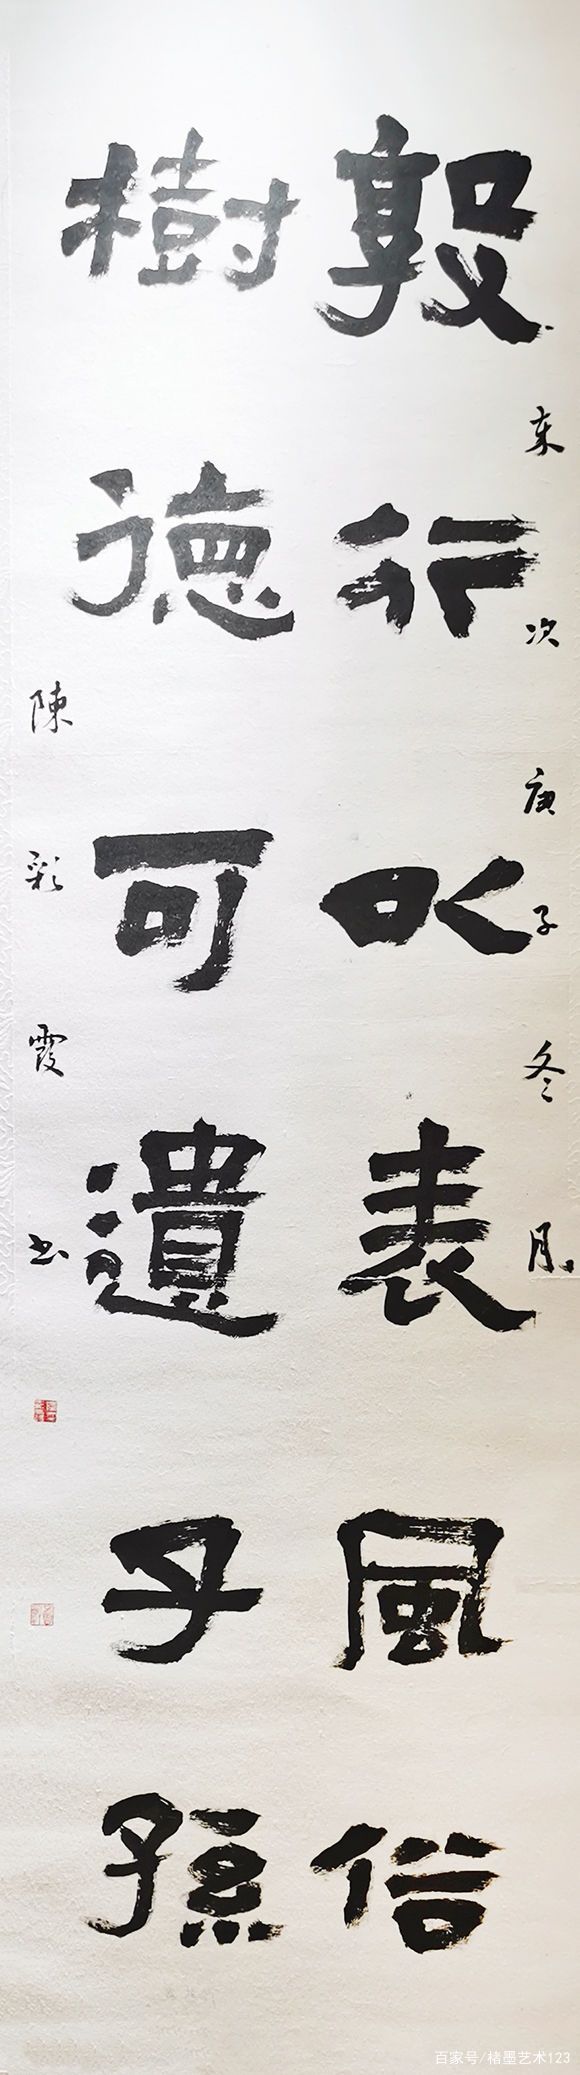 敦行以表風俗
樹德可遺子孫
歲次庚子冬月
陳彩霞书
百家号/楮墨艺术123